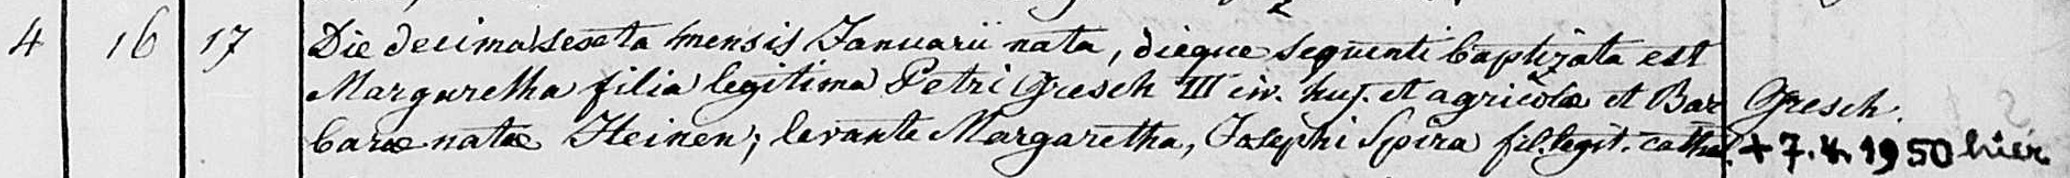 4 16 17 Die decima sexta mensis Januarii nata, dieque sequenti baptizata est
Margaretha filia legitima Petri Gresch III civ. huj. et agricolæ et Bar Gresch.
baræ natæ Heinen; levante Margaretha, Josephi Spira fil. legit. cathol. + 7.4.1950 hier